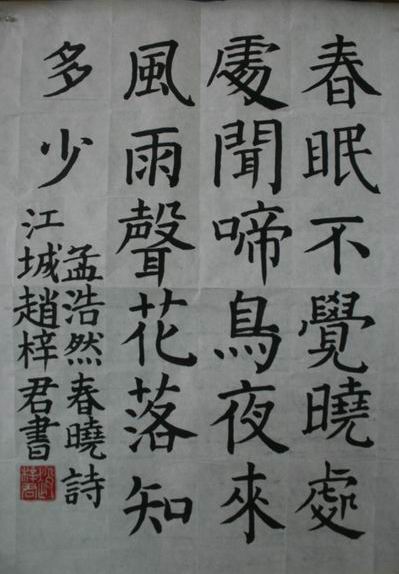 春眠不覺曉處
處聞啼鳥夜來
風雨聲花落知
多少
孟浩然春曉詩
江城趙梓君書